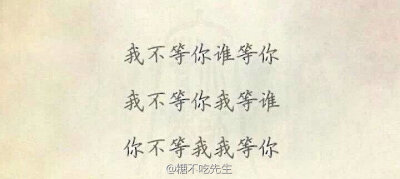 我不等你谁等你
我不等你我等谁
你不等我我等你
@糖不吃先生